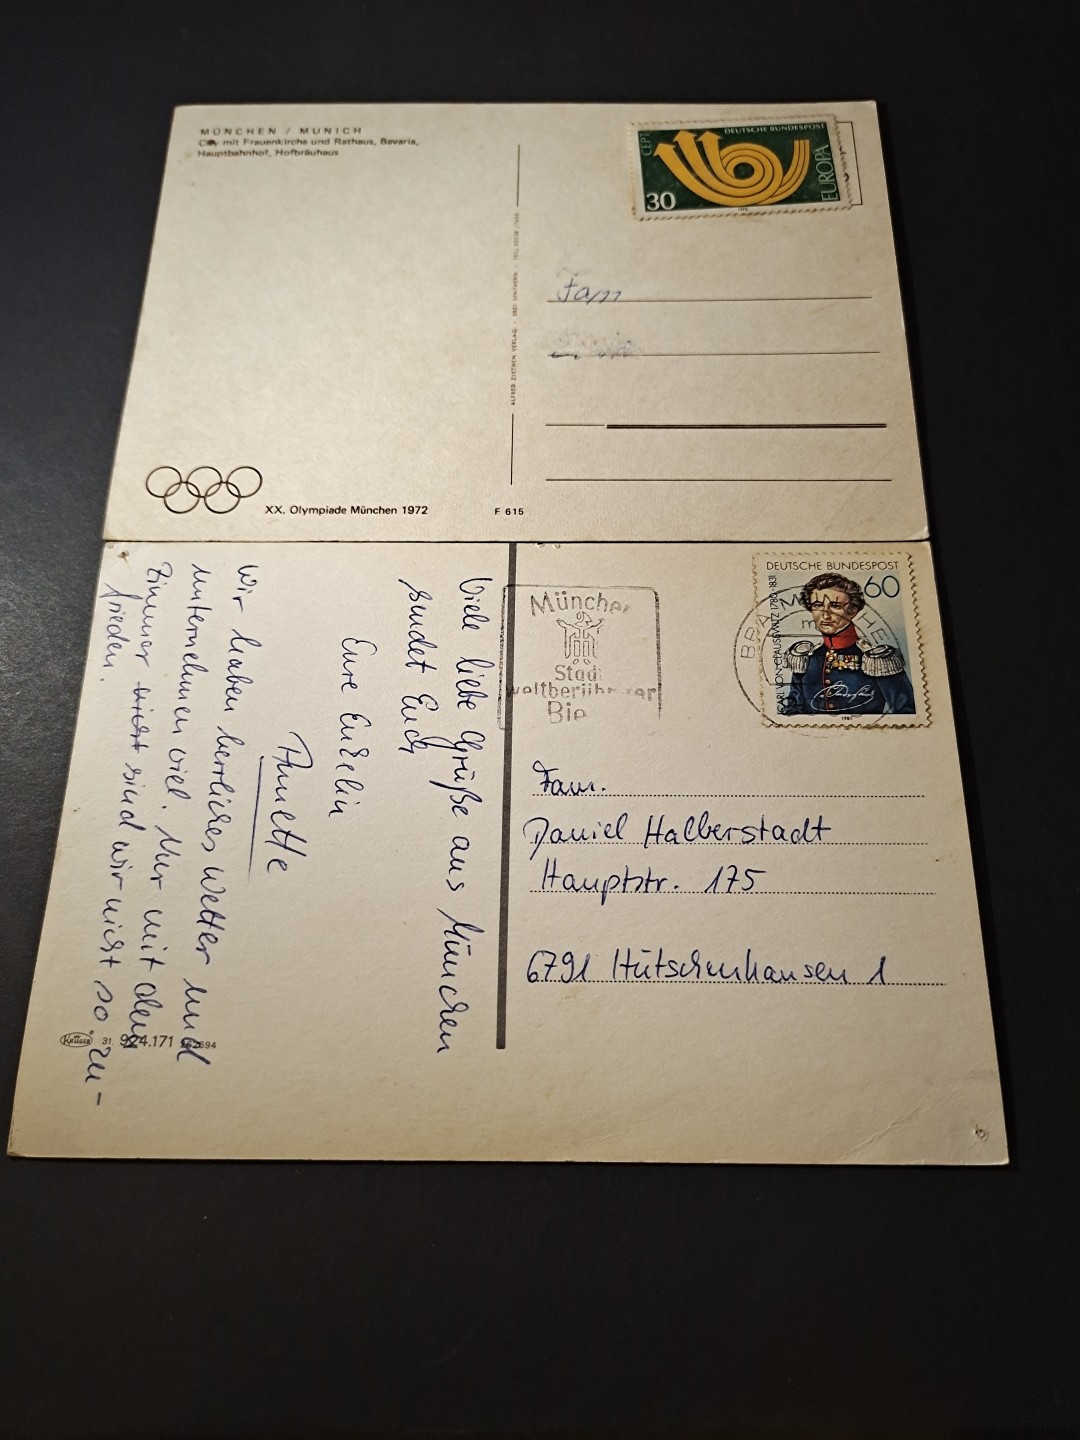 MÜNCHEN / MUNICH
City mit Frauenkirche und Rathaus, Bavaria,
Hauptbahnhof, Hofbräuhaus
CEPT
DEUTSCHE BUNDESPOST
EUROPA
30
ALFRED ZIETHEN VERLAG
Fam
XX. Olympiade München 1972
F 615
Viele liebe Grüße aus München
sendet Euch
Eure Enkelin
Annette
Wir haben herrliches Wetter und
unternehmen viel. Nur mit den
Zimmer nicht sind wir nicht so zu-
frieden.
KRÜGER
31 924.171
München
Stadt
weltberühmter
Bie
DEUTSCHE BUNDESPOST
60
CARL VON CLAUSEWITZ 1780-1831
1981
Fam.
Daniel Halberstadt
Hauptstr. 175
6791 Hütschenhausen 1